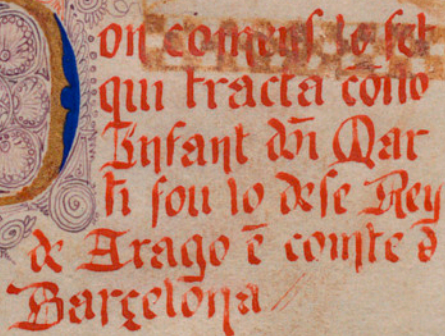 on comens lo fet
qui tracta cōño
Infant dō̄n Mar
ti fou lo dese Rey
de Arago ē comte d̄
Barçelōna